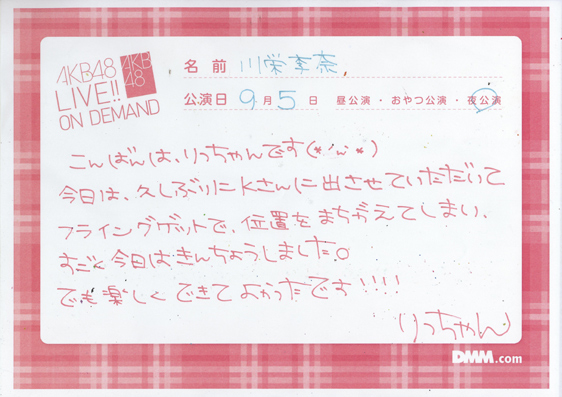 AKB48
LIVE!!
ON DEMAND
AKB
48
名前 川栄李奈
公演日 9月5日 昼公演・おやつ公演・夜公演
こんばんは、りっちゃんです(*'ω'*)
今日は、久しぶりにKさんに出させていただいて
フライングゲットで、位置をまちがえてしまい、
すごく今日はきんちょうしました。
でも楽しくできてよかったです!!!!
りっちゃん
DMM.com